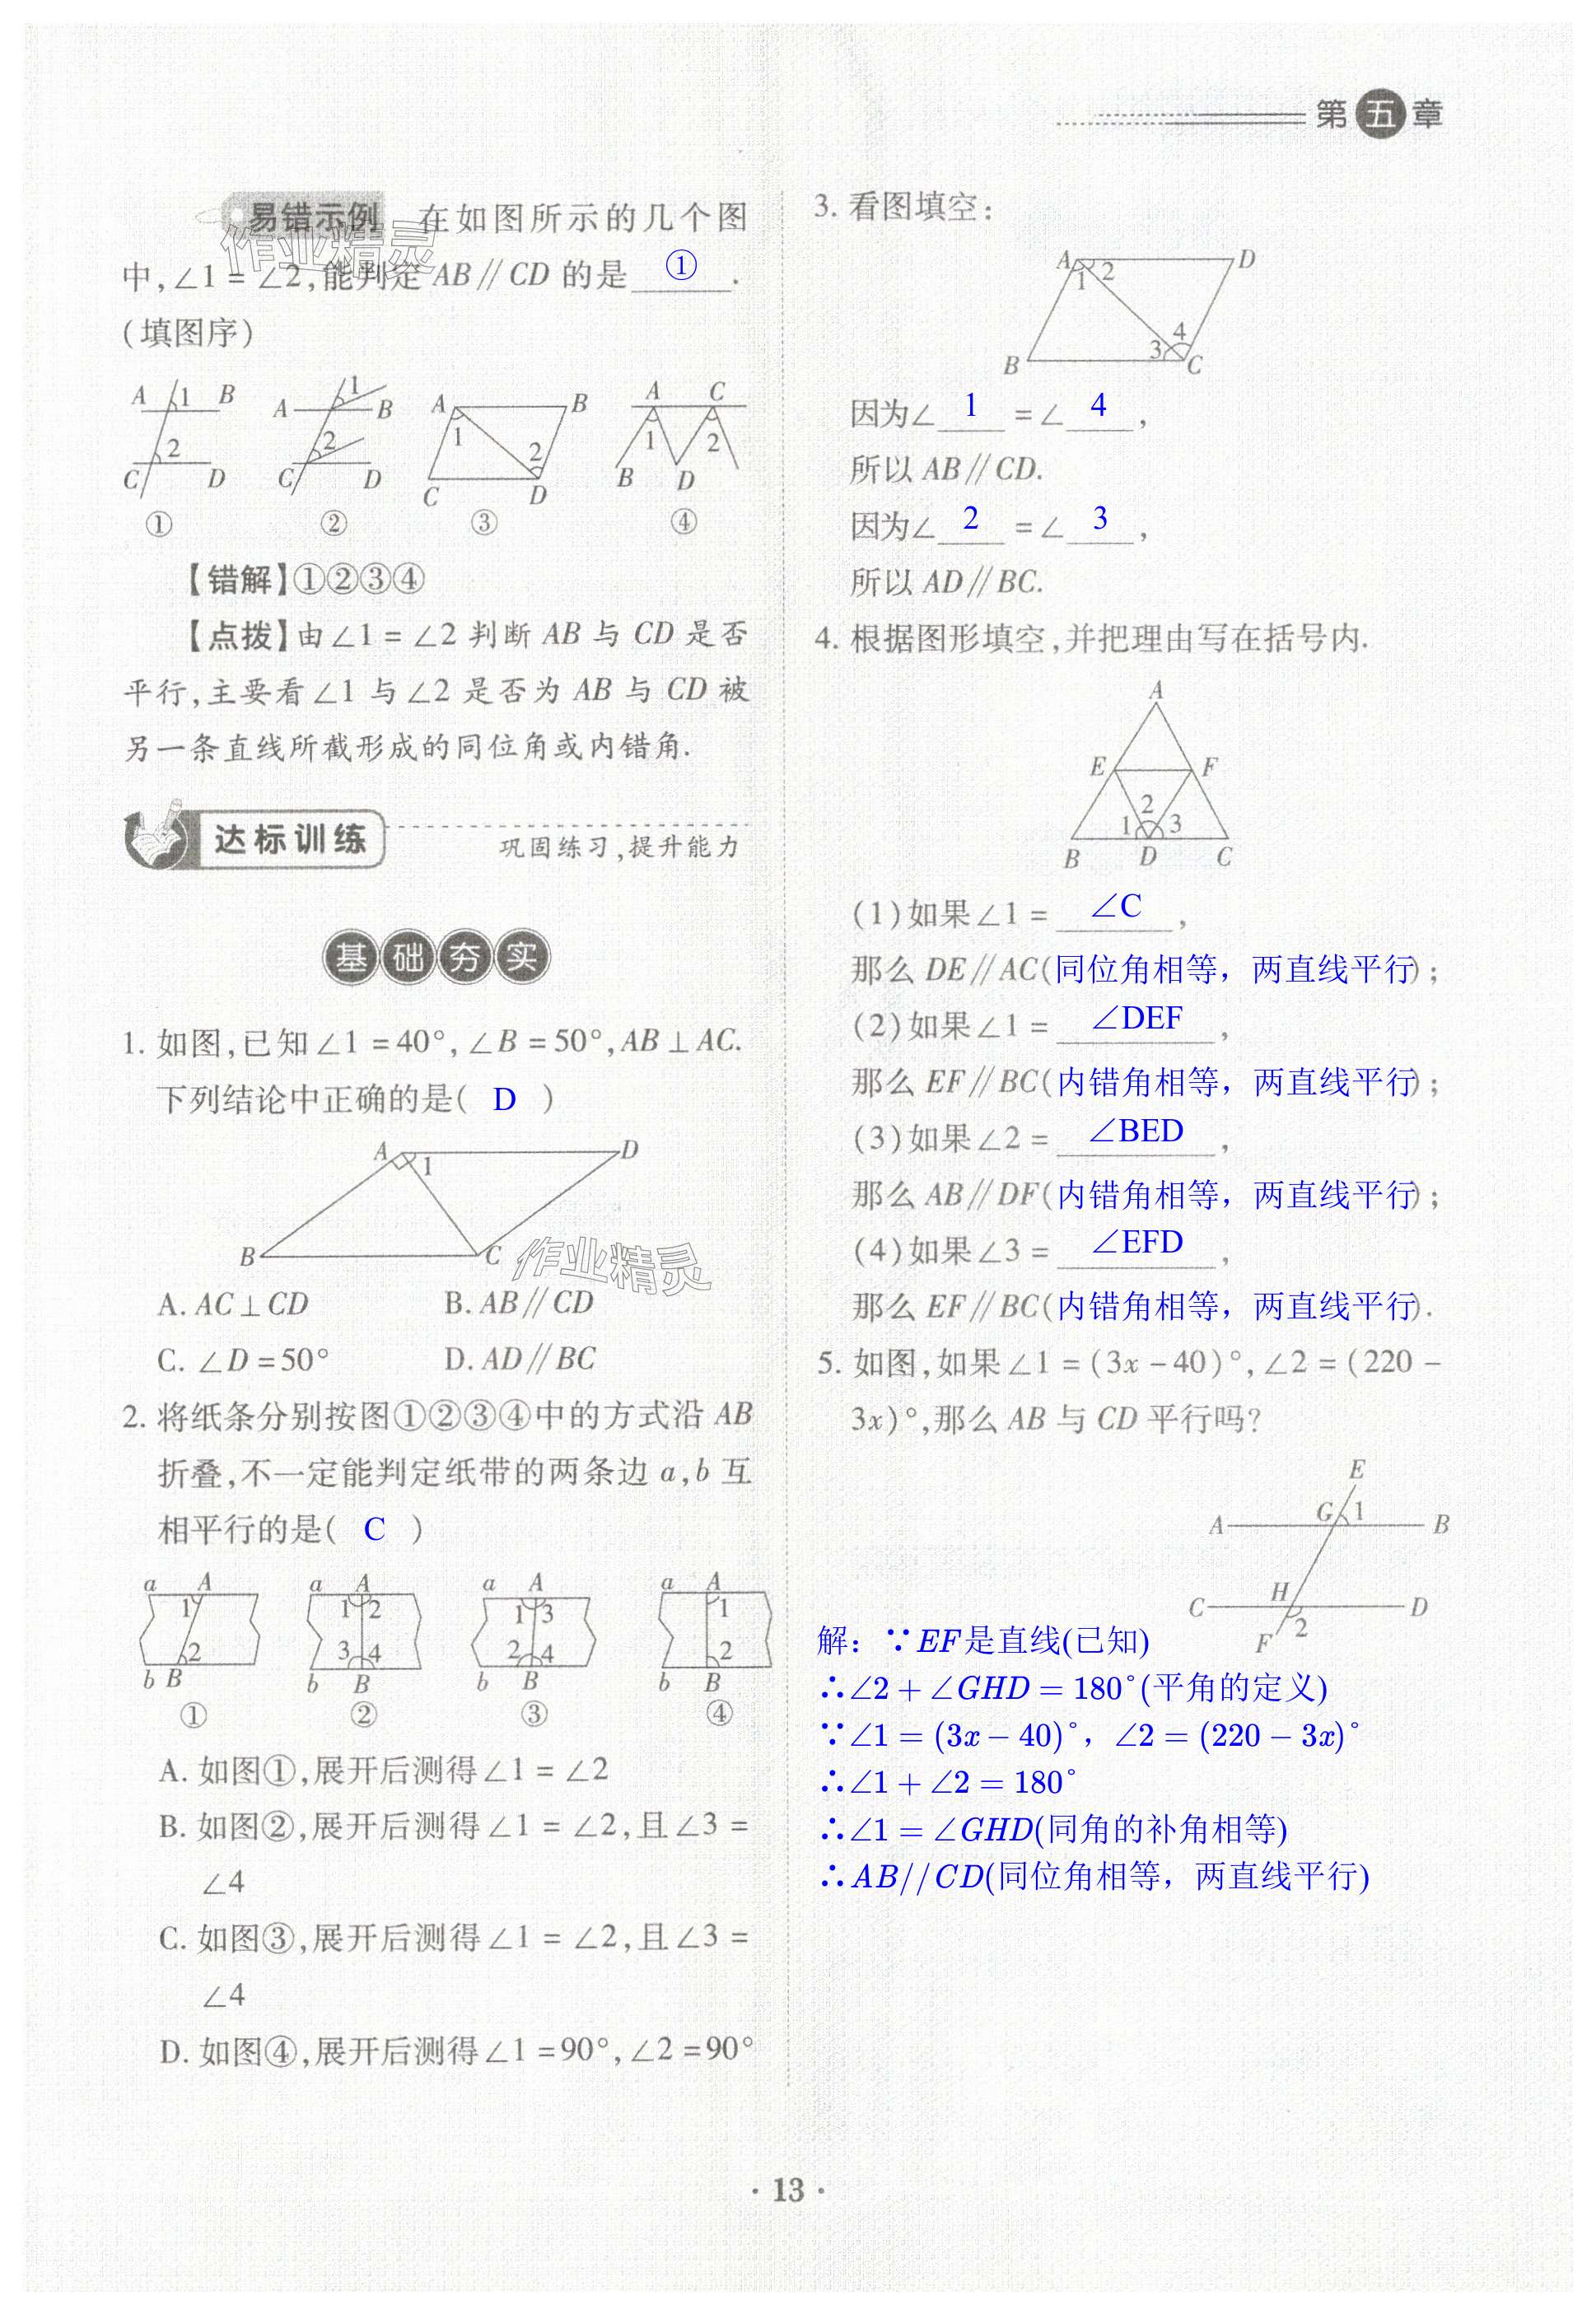 第五章
易错示例 在如图所示的几个图
中,∠1 = ∠2,能判定 AB∥CD 的是 ① .
(填图序)
A 1 B
2
C D
①
1
A B
2
C D
②
A B
1 2
C D
③
A C
1 2
B D
④
【错解】①②③④
【点拨】由∠1 = ∠2 判断 AB 与 CD 是否
平行,主要看∠1 与∠2 是否为 AB 与 CD 被
另一条直线所截形成的同位角或内错角.
达标训练 巩固练习,提升能力
基础夯实
1. 如图,已知∠1 = 40°,∠B = 50°,AB⊥AC.
下列结论中正确的是( D )
A D
1
B C
A. AC⊥CD B. AB∥CD
C. ∠D = 50° D. AD∥BC
2. 将纸条分别按图①②③④中的方式沿 AB
折叠,不一定能判定纸带的两条边 a,b 互
相平行的是( C )
a A
1
2
b B
①
a A
1 2
3 4
b B
②
a A
1 3
2 4
b B
③
a A
1
2
b B
④
A. 如图①,展开后测得∠1 = ∠2
B. 如图②,展开后测得∠1 = ∠2,且∠3 =
∠4
C. 如图③,展开后测得∠1 = ∠2,且∠3 =
∠4
D. 如图④,展开后测得∠1 = 90°,∠2 = 90°
3. 看图填空:
A D
1 2
4
3
B C
因为∠ 1 = ∠ 4 ,
所以 AB∥CD.
因为∠ 2 = ∠ 3 ,
所以 AD∥BC.
4. 根据图形填空,并把理由写在括号内.
A
E F
2
1 3
B D C
(1)如果∠1 = ∠C ,
那么 DE∥AC(同位角相等，两直线平行);
(2)如果∠1 = ∠DEF ,
那么 EF∥BC(内错角相等，两直线平行);
(3)如果∠2 = ∠BED ,
那么 AB∥DF(内错角相等，两直线平行);
(4)如果∠3 = ∠EFD ,
那么 EF∥BC(内错角相等，两直线平行).
5. 如图,如果∠1 = (3x - 40)°,∠2 = (220 -
3x)°,那么 AB 与 CD 平行吗?
E
G 1
A B
H
C D
F 2
解：∵EF是直线(已知)
∴∠2 + ∠GHD = 180°(平角的定义)
∵∠1 = (3x - 40)°，∠2 = (220 - 3x)°
∴∠1 + ∠2 = 180°
∴∠1 = ∠GHD(同角的补角相等)
∴AB//CD(同位角相等，两直线平行)
作业精灵
作业精灵
· 13 ·